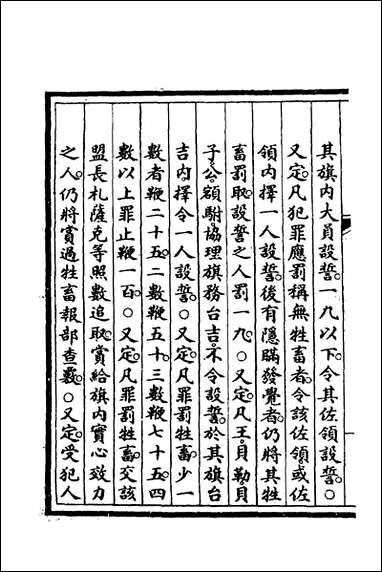 其旗内大員設誓一九以下令其佐領設誓○
又定凡犯罪應罰稱無牲畜者令該佐領或佐
領内擇一人設誓後有隱瞞發覺者仍將其牲
畜罰取設誓之人罰一九○又定凡王貝勒貝
子公額駙協理旗務台吉不令設誓於其旗台
吉内擇令一人設誓○又定凡罪罰牲畜少一
數者鞭二十五二數鞭五十三數鞭七十五四
數以上罪止鞭一百○又定凡罪罰牲畜交該
盟長札薩克等照數追取賞給旗内實心效力
之人仍將賞過牲畜報部查覈○又定受犯人